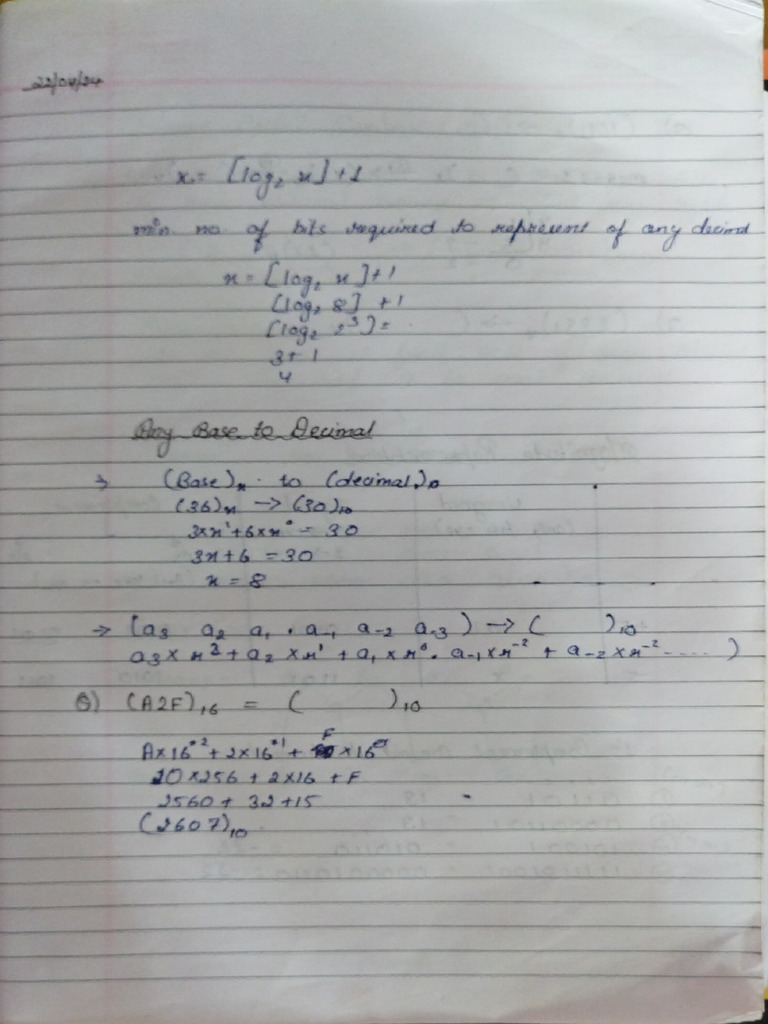 22/04/24
x = [log₂ x] + 1
min no. of bits required to represent of any decimal
x = [log₂ x] + 1
[log₂ 8] + 1
[log₂ 2³] =
3 + 1
4
Any Base to Decimal
→ (Base)ₓ to (decimal)₁₀
(36)ₓ → (30)₁₀
3×x¹+6×x⁰ = 30
3x+6 = 30
x = 8
→ (a₃ a₂ a₁ . a₋₁ a₋₂ a₋₃) → ( )₁₀
a₃ × x² + a₂ × x¹ + a₁ × x⁰ . a₋₁ × x⁻² + a₋₂ × x⁻² ..... )
Q) (A2F)₁₆ = ( )₁₀
A×16² + 2×16¹ + F×16⁰
10×256 + 2×16 + F
2560 + 32 + 15
(2607)₁₀